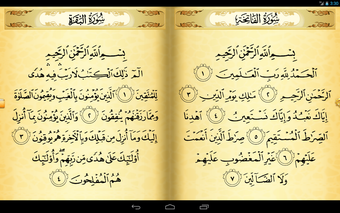 سُورَةُ الفَاتِحَةِ
بِسْمِ اللَّهِ الرَّحْمَٰنِ الرَّحِيمِ
الْحَمْدُ لِلَّهِ رَبِّ الْعَالَمِينَ ١
الرَّحْمَٰنِ الرَّحِيمِ ٢ مَالِكِ يَوْمِ الدِّينِ ٣
إِيَّاكَ نَعْبُدُ وَإِيَّاكَ نَسْتَعِينُ ٤ اهْدِنَا
الصِّرَاطَ الْمُسْتَقِيمَ ٥ صِرَاطَ الَّذِينَ أَنْعَمْتَ
عَلَيْهِمْ ٦ غَيْرِ الْمَغْضُوبِ عَلَيْهِمْ
وَلَا الضَّالِّينَ ٧
سُورَةُ البَقَرَةِ
بِسْمِ اللَّهِ الرَّحْمَٰنِ الرَّحِيمِ
الم ذَٰلِكَ الْكِتَٰبُ لَا رَيْبَ فِيهِ هُدًى
لِّلْمُتَّقِينَ ١ الَّذِينَ يُؤْمِنُونَ بِالْغَيْبِ وَيُقِيمُونَ الصَّلَاةَ
وَمِمَّا رَزَقْنَٰهُمْ يُنفِقُونَ ٢ وَالَّذِينَ يُؤْمِنُونَ بِمَا أُنزِلَ
إِلَيْكَ وَمَا أُنزِلَ مِن قَبْلِكَ وَبِالْآخِرَةِ هُمْ يُوقِنُونَ ٣
أُولَٰئِكَ عَلَىٰ هُدًى مِّن رَّبِّهِمْ وَأُولَٰئِكَ
هُمُ الْمُفْلِحُونَ ٤